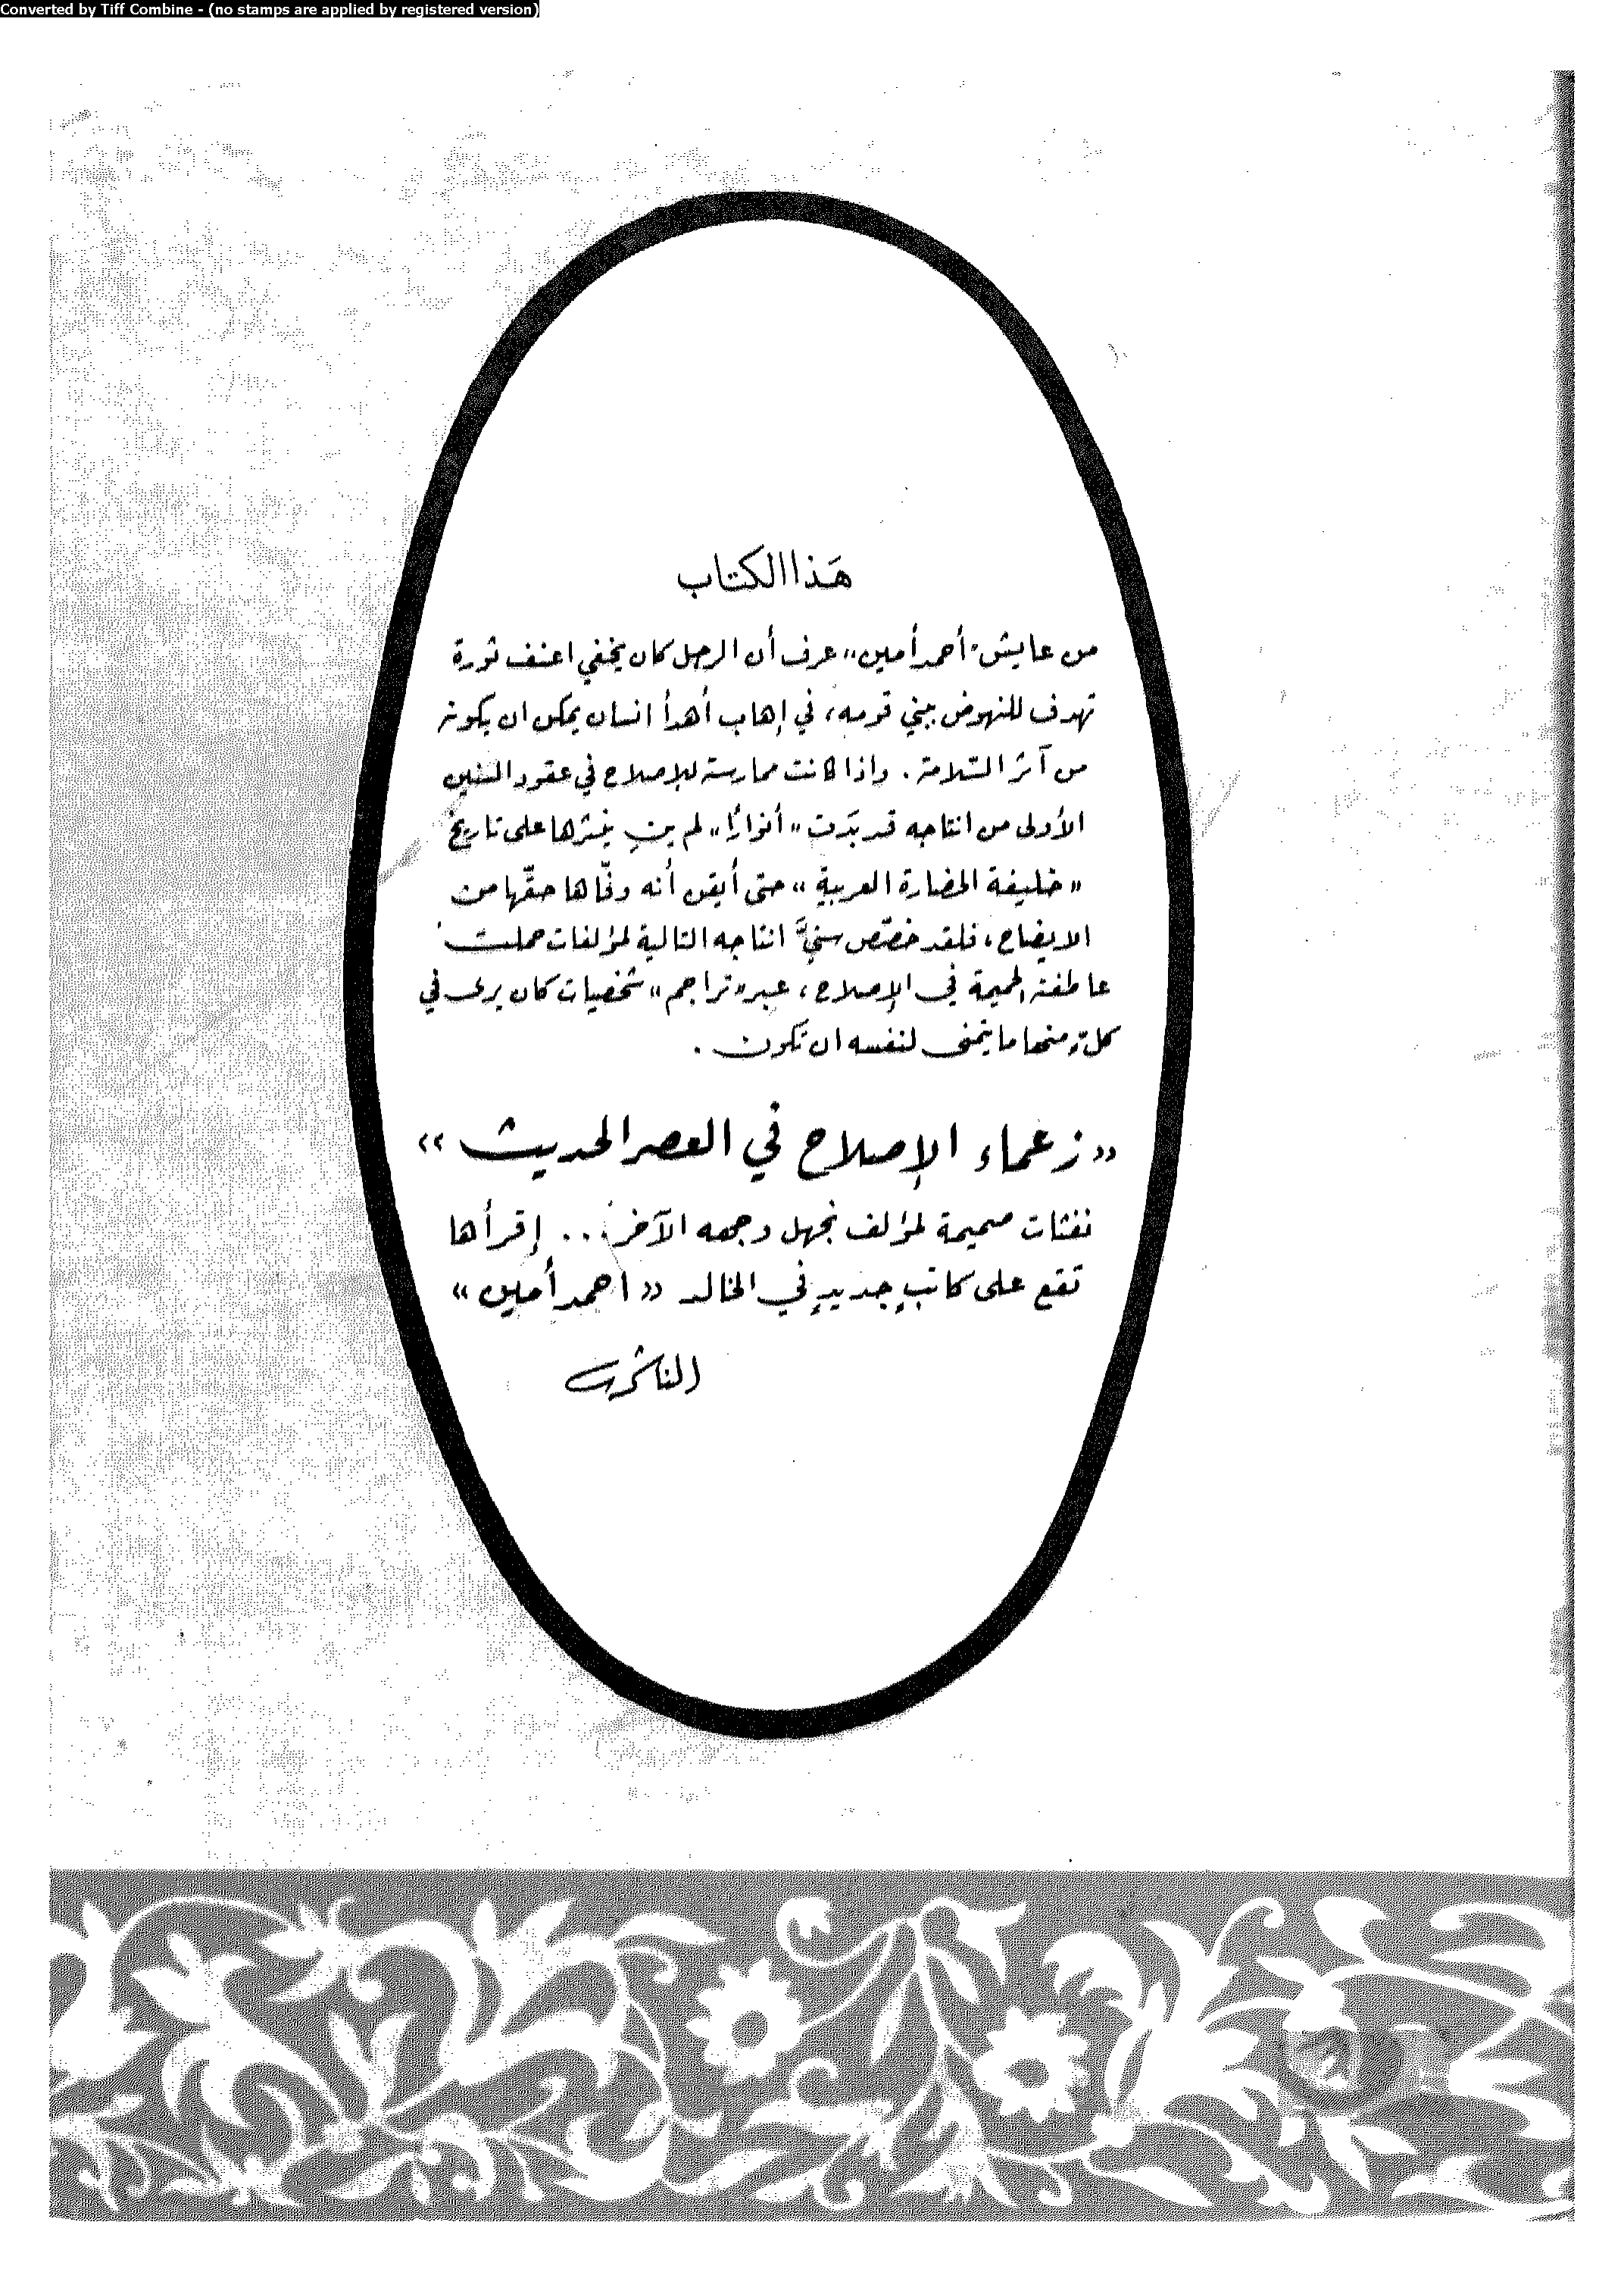 Converted by Tiff Combine - (no stamps are applied by registered version)
هَذا الكتاب
من عايش "أحمد أمين" عرف أن الرجل كان يخفي اعنف ثورة
تهدف للنهوض ببني قومه، في إهاب أهدأ انسان يمكن ان يكونه
من آثر السّلامة. واذا كانت ممارسته للإصلاح في عقود السنين
الأولى من انتاجه قد بَدَت "أنوارًا" لم ينثرها على تاريخ
"خليفة الحضارة العربية" حتى أيقن أنه وفّاها حقّها من
الايضاح، فلقد خصّص سنيَّ انتاجه التالية لمؤلفات حملت
عاطفته الحميمة في الإصلاح، عبر "تراجم" شخصيات كان يرى في
كلٍّ منها ما يتمنى لنفسه ان تكون.
"زعماء الإصلاح في العصر الحديث"
نفثات صميمة لمؤلف نجهل وجهه الآخر... إقرأها
تقع على كاتبٍ جديدٍ في الخالد "احمد أمين"
الناشر